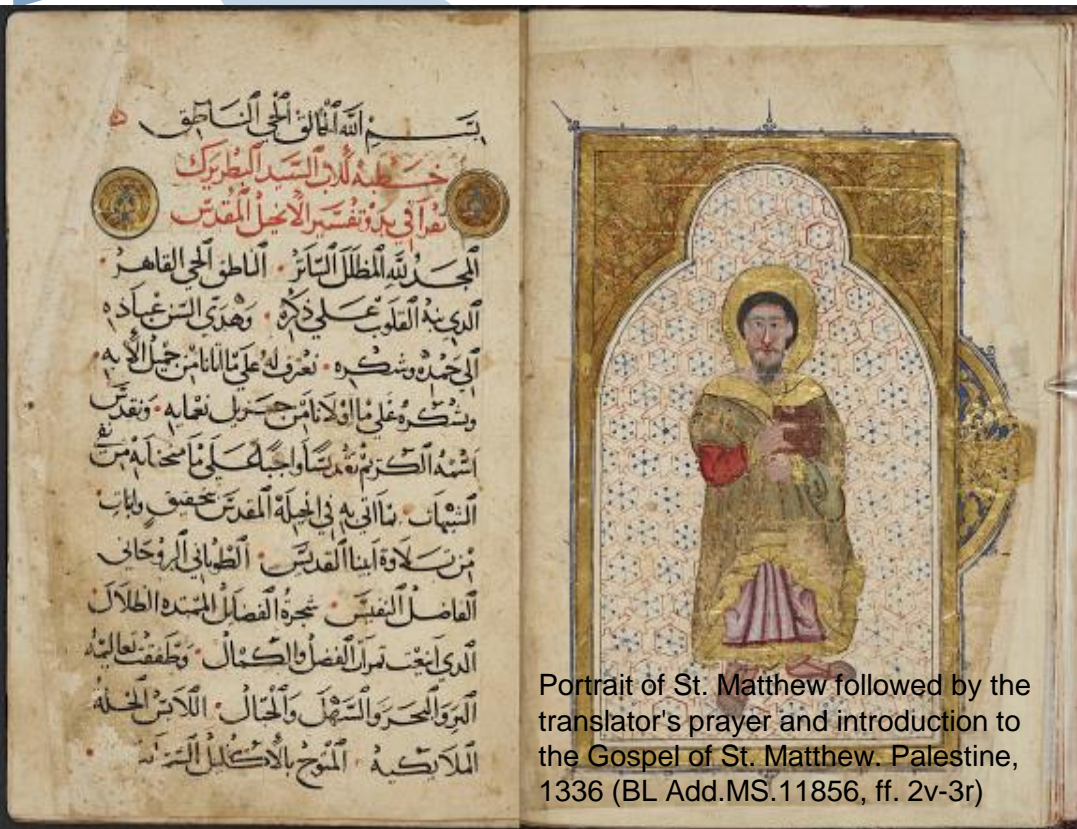 بسم الله الخالق الحي الناطق
خطبة للاب السيد البطريرك
تقرا في بدو تفسير الانجيل المقدس
المجد لله المظلل الساتر · الناطق الحي القاهر ·
الدي نبه القلوب علي ذكره · وهدي السن عباده
الي حمده وشكره · نعترف له علي ما انالنا من جميل الايه ·
ونشكره علي ما اولانا من جزيل نعمايه · ونقدس
اسمه الكريم تقديسا واجبا علي ما من
الشبهات · بما اتي به في المقدس
من تلاوة ابينا القديس · الطوباني الروحاني
الفاضل النفيس · شجرة الفضايل الممتده الظلال
الدي اينعت ثمرات الفضل والكمال · وطفقت تعاليمه
البر والبحر والسهل والجبال · اللابس الحلة
الملايكيه · المتوج بالاكليل
Portrait of St. Matthew followed by the
translator's prayer and introduction to
the Gospel of St. Matthew. Palestine,
1336 (BL Add.MS.11856, ff. 2v-3r)